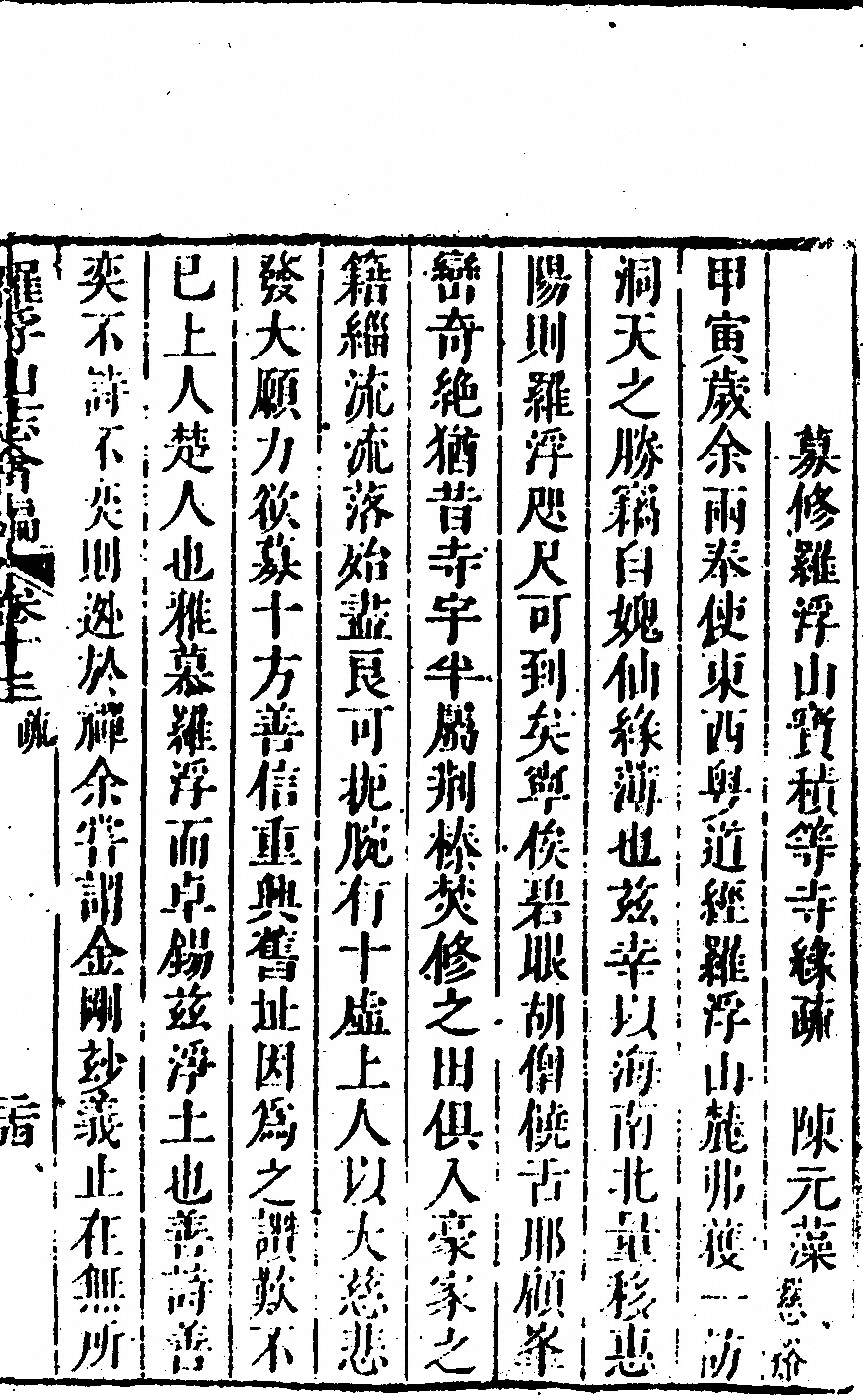 募修羅浮山寶積等寺緣疏 陳元藻 慈谿
甲寅歲余兩奉使東西粵道經羅浮山麓弗獲一訪
洞天之勝竊自媿仙緣薄也茲幸以海南北量移惠
陽則羅浮咫尺可到矣寧俟碧眼胡僧饒舌耶顧峯
巒奇絶猶昔寺宇半屬荆榛焚修之田俱入豪家之
籍緇流流落殆盡良可扼腕有十虛上人以大慈悲
發大願力欲募十方善信重興舊址因爲之讚歎不
已上人楚人也雅慕羅浮而卓錫茲淨土也善詩善
奕不詩不奕則逃於禪余嘗謂金剛玅義止在無所
羅浮山志會編 卷十三 疏